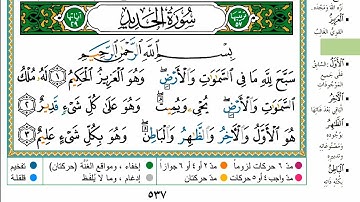 سُورَةُ الْحَدِيدِ
بِسْمِ اللَّهِ الرَّحْمَٰنِ الرَّحِيمِ
سَبَّحَ لِلَّهِ مَا فِي السَّمَٰوَٰتِ وَالْأَرْضِ ۖ وَهُوَ الْعَزِيزُ الْحَكِيمُ ۝١ لَهُ مُلْكُ
السَّمَٰوَٰتِ وَالْأَرْضِ ۖ يُحْيِي وَيُمِيتُ ۖ وَهُوَ عَلَىٰ كُلِّ شَيْءٍ قَدِيرٌ ۝٢
هُوَ الْأَوَّلُ وَالْآخِرُ وَالظَّٰهِرُ وَالْبَاطِنُ ۖ وَهُوَ بِكُلِّ شَيْءٍ عَلِيمٌ ۝٣
مدّ ٦ حركات لزوماً مدّ ٢ أو ٤ أو ٦ جوازاً إخفاء، ومواقع الغُنَّة (حركتان) تفخيم
مدّ واجب ٤ أو ٥ حركات مدّ حركتان إدغام، وما لا يُلفَظ قلقلة
٥٣٧
الْعَزِيزُ
القويّ الغالب
الْأَوَّلُ
الْآخِرُ
الظَّاهِرُ
الْبَاطِنُ